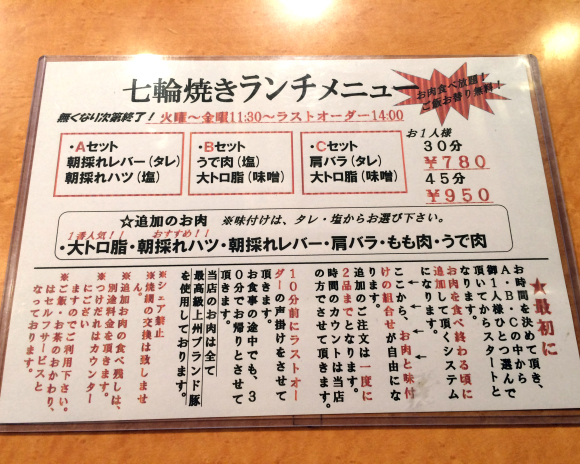 七輪焼きランチメニュー
お肉食べ放題！
ご飯お替り無料！
無くなり次第終了！ 火曜～金曜11:30～ラストオーダー14:00
・Aセット
朝採れレバー（タレ）
朝採れハツ（塩）
・Bセット
うで肉（塩）
大トロ脂（味噌）
・Cセット
肩バラ（タレ）
大トロ脂（味噌）
お１人様
３０分
￥７８０
４５分
￥９５０
☆追加のお肉 ※味付けは、タレ・塩からお選び下さい。
１番人気！！ おすすめ！！
・大トロ脂・朝採れハツ・朝採れレバー・肩バラ・もも肉・うで肉
★最初に
お時間を決めて頂き、
A・B・Cの中から
御１人様ひとつ選んで
頂いてからスタートと
なります。
お肉を食べ終わる頃に
追加して頂くシステム
になります。
← ← ←
ここから、お肉と味付
けの組合せが自由にな
ります。
追加のご注文は一度に
2品までとなります。
時間のカウントは当店
の方でさせて頂きます。
１０分前にラストオー
ダーの声掛けをさせて
頂きます。
お食事の途中でも、３
０分でお帰りとさせて
頂きます。
当店のお肉は全て
最高級上州ブランド豚
を使用しております。
※シェア禁止
※焼網の交換は致しませ
ん。
※追加お肉の食べ残しは、
別途料金を頂きます。
※つけだれはカウンター
にござい
ますのでご利用下さい。
※ご飯・お茶のおかわり、
はセルフサービスと
なっております。